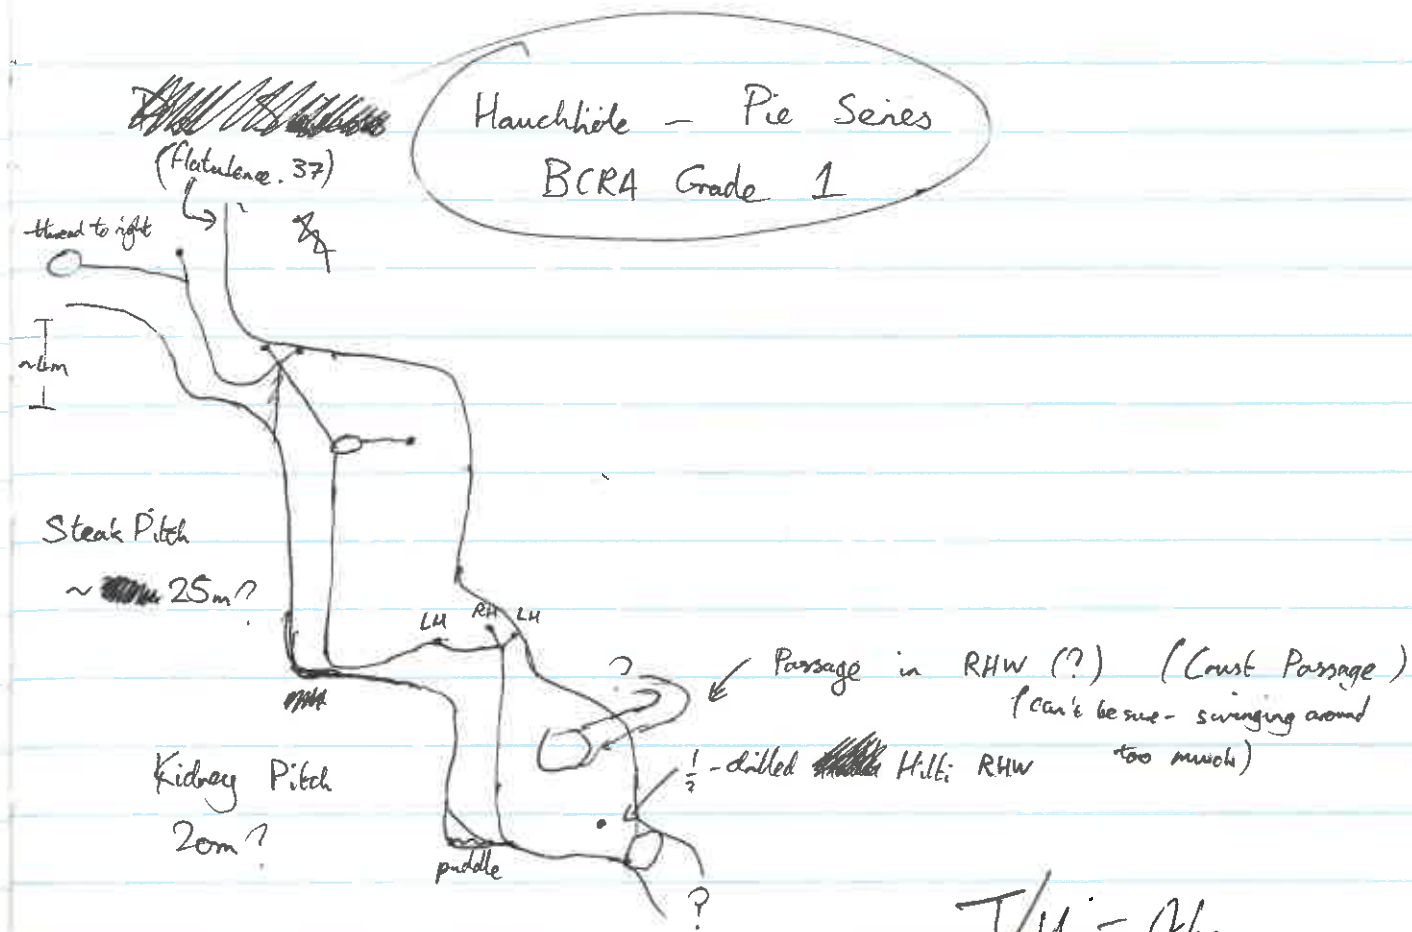 Hauchhöle - Pie Series
BCRA Grade 1
(flatulence.37)
thread to right
~4m
Steak Pitch
~ 25m?
LH
RH
LH
?
Passage in RHW (?) (Crust Passage)
(can't be sure - swinging around
too much)
½-drilled Hilti RHW
Kidney Pitch
20m?
puddle
?
T/U -